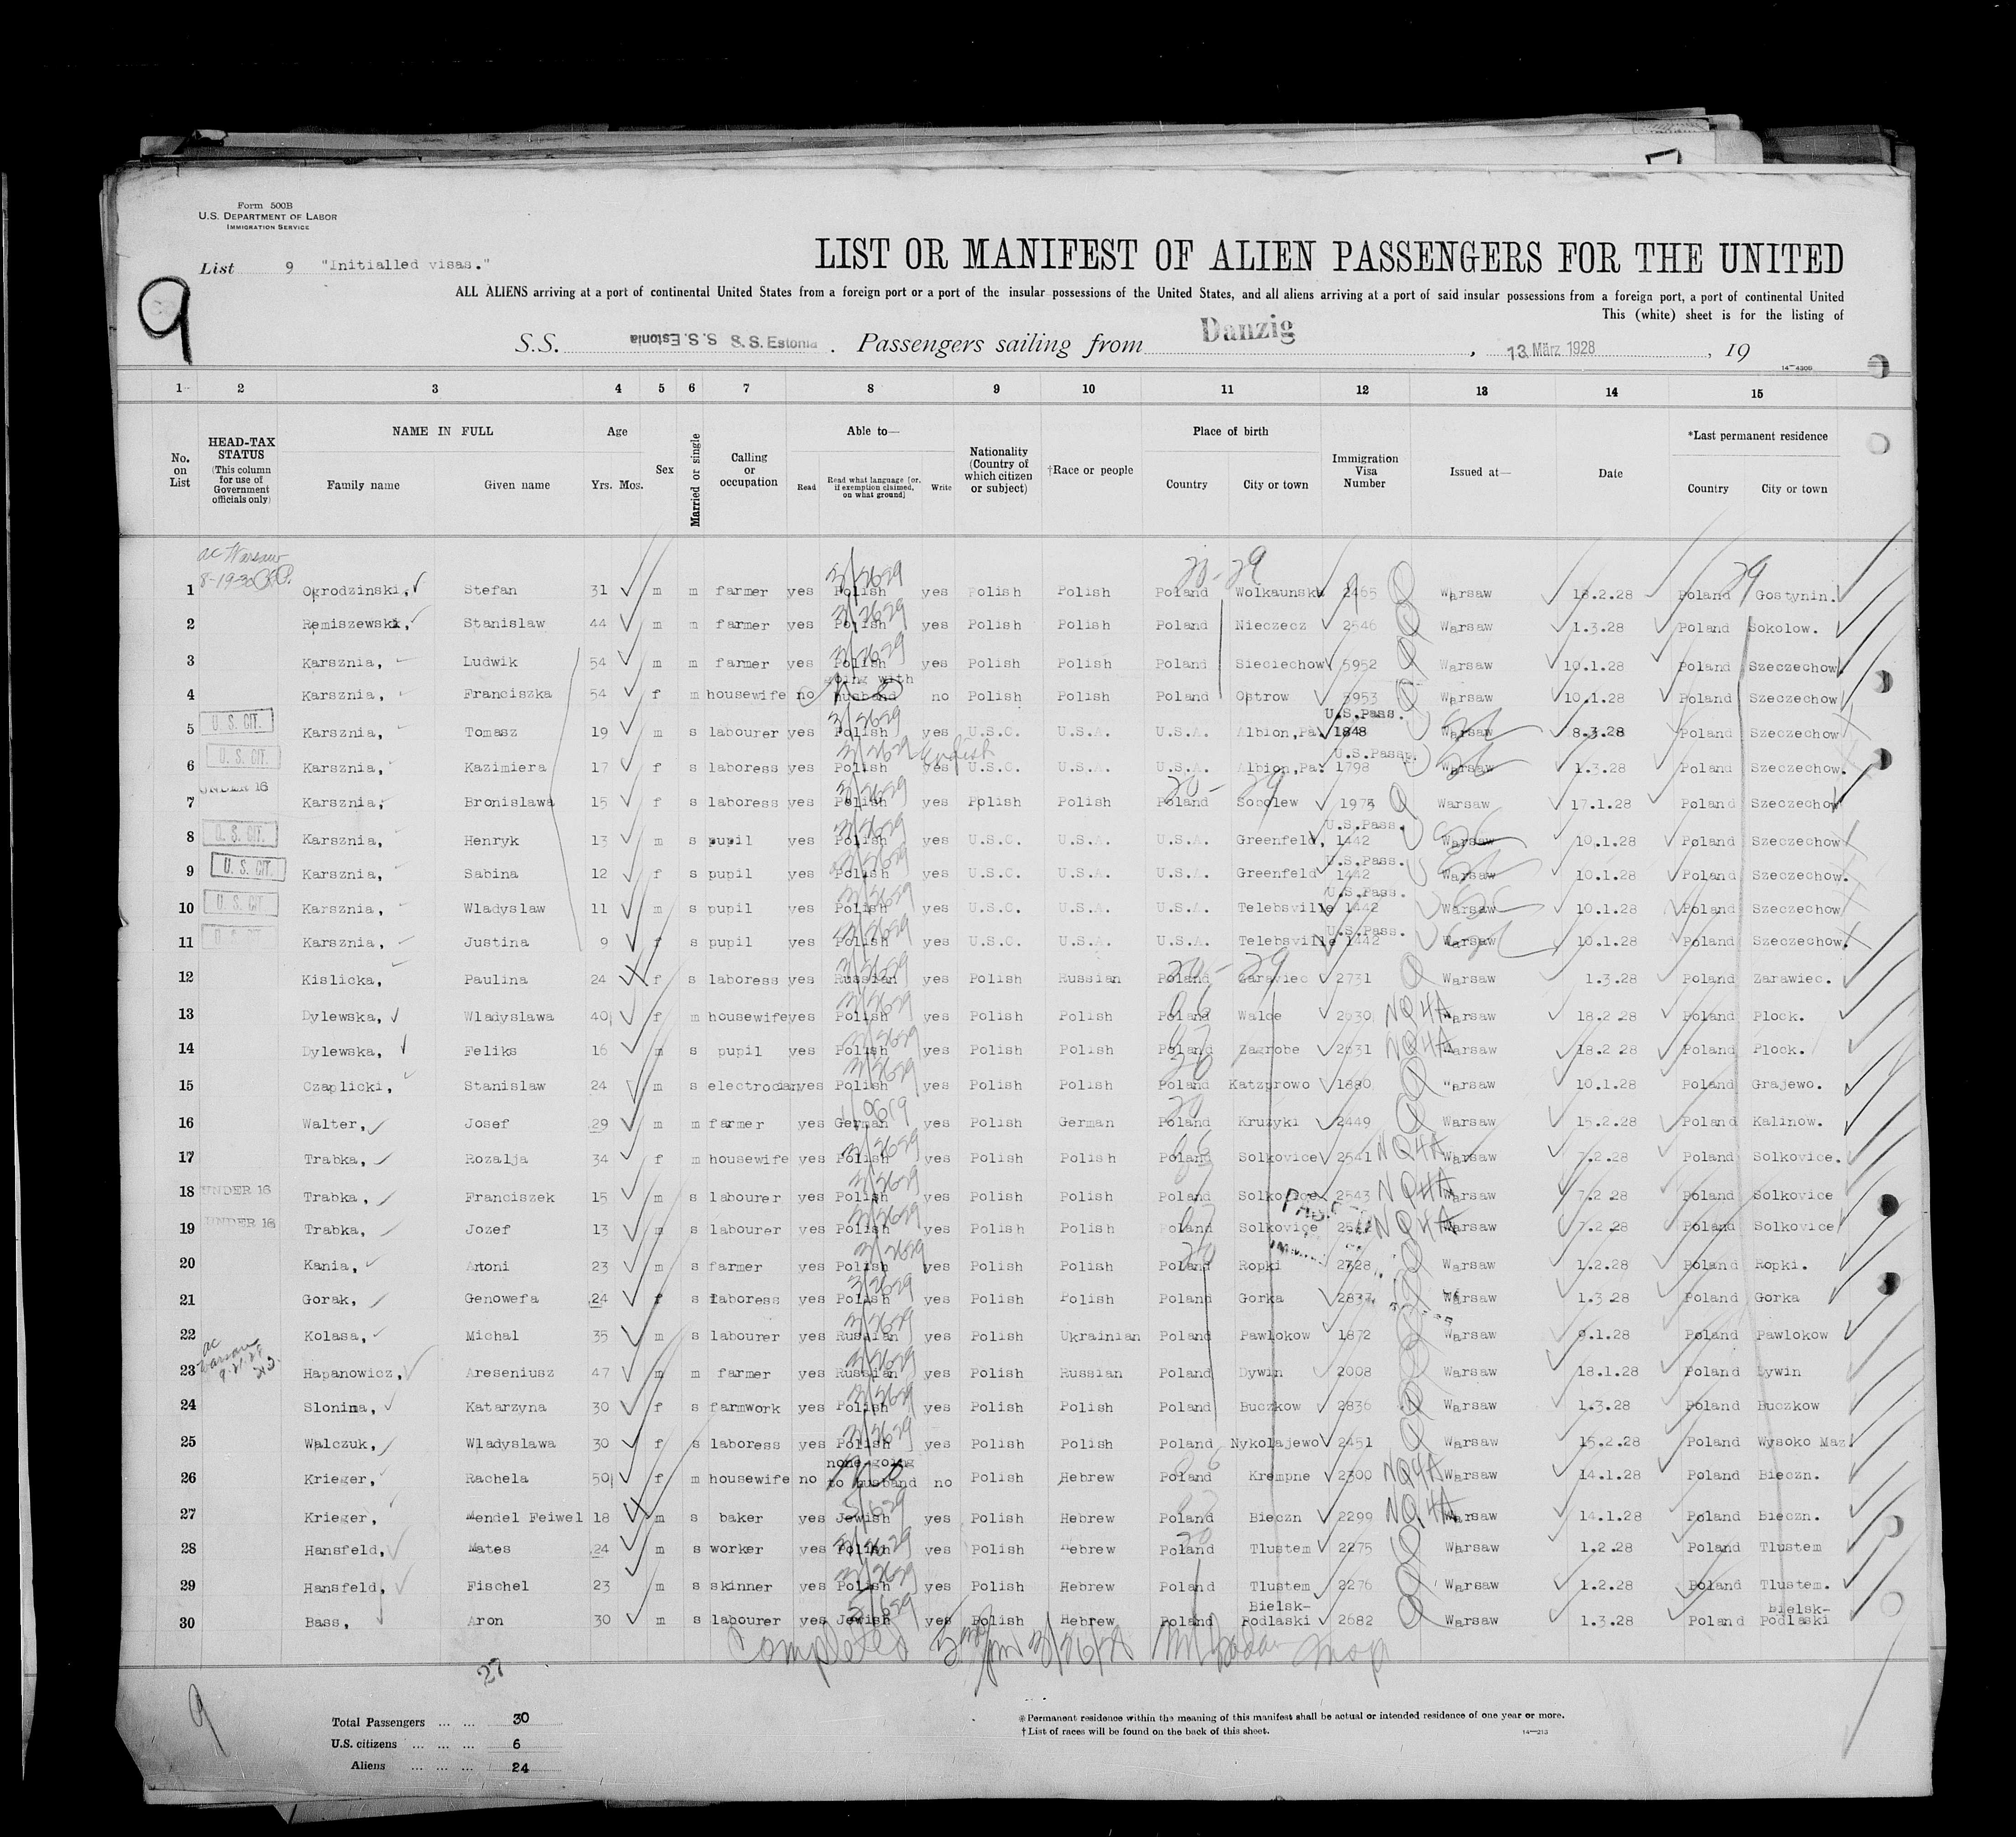 Form 500B
U.S. DEPARTMENT OF LABOR
IMMIGRATION SERVICE
List 9 "Initialled visas."
9
LIST OR MANIFEST OF ALIEN PASSENGERS FOR THE UNITED
ALL ALIENS arriving at a port of continental United States from a foreign port or a port of the insular possessions of the United States, and all aliens arriving at a port of said insular possessions from a foreign port, a port of continental United
This (white) sheet is for the listing of
S.S. S.S. Estonia S.S. Estonia. Passengers sailing from Danzig, 13. März 1928, 19
14—430b
1 2 3 4 5 6 7 8 9 10 11 12 13 14 15
No. on List
HEAD-TAX STATUS (This column for use of Government officials only)
NAME IN FULL Family name Given name
Age Yrs. Mos.
Sex
Married or single
Calling or occupation
Able to— Read Read what language [or, if exemption claimed, on what ground] Write
Nationality (Country of which citizen or subject)
†Race or people
Place of birth Country City or town
Immigration Visa Number
Issued at—
Date
*Last permanent residence Country City or town
ac Warsaw
1 Ogrodzinski, Stefan 31 m m farmer yes Polish yes Polish Polish Poland Wolkaunsk 2465 Warsaw 18.2.28 Poland Gostynin.
2 Remiszewski, Stanislaw 44 m m farmer yes Polish yes Polish Polish Poland Nieczecz 2546 Warsaw 1.3.28 Poland Sokolow.
3 Karsznia, Ludwik 54 m m farmer yes Polish yes Polish Polish Poland Sieciechow 5952 Warsaw 10.1.28 Poland Szeczechow
4 Karsznia, Franciszka 54 f m housewife no going with husband no Polish Polish Poland Ostrow 5953 Warsaw 10.1.28 Poland Szeczechow
5 U. S. CIT. Karsznia, Tomasz 19 m s labourer yes Polish yes U.S.C. U.S.A. U.S.A. Albion,Pa. U.S.Pass. 1848 Warsaw 8.3.28 Poland Szeczechow
6 U. S. CIT. Karsznia, Kazimiera 17 f s laboress yes Polish English yes U.S.C. U.S.A. U.S.A. Albion,Pa. U.S.Pass. 1798 Warsaw 1.3.28 Poland Szeczechow.
7 UNDER 16 Karsznia, Bronislawa 15 f s laboress yes Polish yes Polish Polish Poland Sobolew 1973 Warsaw 17.1.28 Poland Szeczechow
8 U. S. CIT. Karsznia, Henryk 13 m s pupil yes Polish yes U.S.C. U.S.A. U.S.A. Greenfeld, U.S.Pass. 1442 Warsaw 10.1.28 Poland Szeczechow
9 U. S. CIT. Karsznia, Sabina 12 f s pupil yes Polish yes U.S.C. U.S.A. U.S.A. Greenfeld U.S.Pass. 1442 Warsaw 10.1.28 Poland Szeczechow.
10 U. S. CIT. Karsznia, Wladyslaw 11 m s pupil yes Polish yes U.S.C. U.S.A. U.S.A. Telebsville U.S.Pass. 1442 Warsaw 10.1.28 Poland Szeczechow
11 U. S. CIT. Karsznia, Justina 9 f s pupil yes Polish yes U.S.C. U.S.A. U.S.A. Telebsville U.S.Pass. 1442 Warsaw 10.1.28 Poland Szeczechow.
12 Kislicka, Paulina 24 f s laboress yes Russian yes Polish Russian Poland Zarawiec 2731 Warsaw 1.3.28 Poland Zarawiec.
13 Dylewska, Wladyslawa 40 f m housewife yes Polish yes Polish Polish Poland Walce 2630 NQ4A Warsaw 18.2 28 Poland Plock.
14 Dylewska, Feliks 16 m s pupil yes Polish yes Polish Polish Poland Zagrobe 2631 NQ4A Warsaw 18.2 28 Poland Plock.
15 Czaplicki, Stanislaw 24 m s electrocian yes Polish yes Polish Polish Poland Katzprowo 1880 Warsaw 10.1.28 Poland Grajewo.
16 Walter, Josef 29 m m farmer yes German yes Polish German Poland Kruzyki 2449 Warsaw 15.2.28 Poland Kalinow.
17 Trabka, Rozalja 34 f m housewife yes Polish yes Polish Polish Poland Solkovice 2541 NQ4A Warsaw 7.2.28 Poland Solkovice.
18 UNDER 16 Trabka, Franciszek 15 m s labourer yes Polish yes Polish Polish Poland Solkovice 2543 NQ4A Warsaw 7.2 28 Poland Solkovice
19 UNDER 16 Trabka, Jozef 13 m s labourer yes Polish yes Polish Polish Poland Solkovice NQ4A Warsaw 7.2 28 Poland Solkovice
20 Kania, Antoni 23 m s farmer yes Polish yes Polish Polish Poland Ropki 2328 Warsaw 1.2.28 Poland Ropki.
21 Gorak, Genowefa 24 f s laboress yes Polish yes Polish Polish Poland Gorka 2837 Warsaw 1.3 28 Poland Gorka
22 Kolasa, Michal 35 m s labourer yes Russian yes Polish Ukrainian Poland Pawlokow 1872 Warsaw 9.1.28 Poland Pawlokow
ac Warsaw
23 Hapanowicz, Areseniusz 47 m m farmer yes Russian yes Polish Russian Poland Dywin 2008 Warsaw 18.1.28 Poland Dywin
24 Slonina, Katarzyna 30 f s farmwork yes Polish yes Polish Polish Poland Buczkow 2836 Warsaw 1.3.28 Poland Buczkow
25 Walczuk, Wladyslawa 30 f s laboress yes Polish yes Polish Polish Poland Nykolajewo 2451 Warsaw 15.2.28 Poland Wysoko Maz.
26 Krieger, Rachela 50 f m housewife no none going to husband no Polish Hebrew Poland Krempne 2300 NQ4A Warsaw 14.1.28 Poland Bieczn.
27 Krieger, Mendel Feiwel 18 m s baker yes Jewish yes Polish Hebrew Poland Bieczn 2299 NQ4A Warsaw 14.1.28 Poland Bieczn.
28 Hansfeld, Mates 24 m s worker yes Polish yes Polish Hebrew Poland Tlustem 2275 Warsaw 1.2.28 Poland Tlustem
29 Hansfeld, Fischel 23 m s skinner yes Polish yes Polish Hebrew Poland Tlustem 2276 Warsaw 1.2.28 Poland Tlustem.
30 Bass, Aron 30 m s labourer yes Jewish yes Polish Hebrew Poland Bielsk-Podlaski 2682 Warsaw 1.3.28 Poland Bielsk-Podlaski
Completed
27
9
Total Passengers ... ... 30
U.S. citizens ... ... ... 6
Aliens ... ... ... 24
*Permanent residence within the meaning of this manifest shall be actual or intended residence of one year or more.
†List of races will be found on the back of this sheet.
14—213